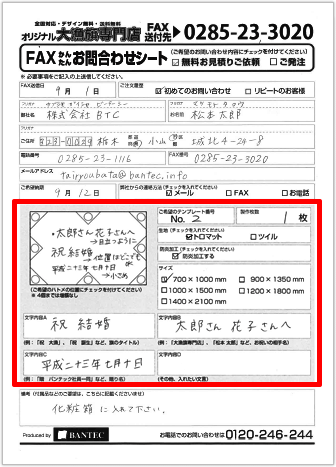 全国対応・デザイン無料・送料無料
オリジナル 大漁旗専門店 FAX送付先 0285-23-3020
FAX かんたん お問合わせシート
(ご希望のお問い合わせ内容にチェックを付けてください)
☑ 無料お見積りご依頼 □ ご発注
※ 必須事項をご記入の上送信してください。
FAX送信日 9月1日 ご注文履歴 ☑ 初めてのお問い合わせ □ リピートのお客様
フリガナ
御社名 株式会社BTC
フリガナ マツモトタロウ
お名前 松本太郎
ご住所 栃木 小山 城北4-24-8
電話番号 0285-23-1116 FAX番号 0285-23-3020
メールアドレス tairyoubata@bantec.info
ご希望納期 9月12日 弊社からの連絡方法(チェックを入れてください) ☑ メール □ FAX □ お電話
・太郎さん花子さんへ
→目立つように
祝結婚
→位置はどこでもOK
平成二十三年七月十日
→小さめ
(ご希望のハトメの位置にチェックを付けてください)
※4個までは増額なし
ご希望のテンプレート番号 No. 2 製作枚数 1枚
生地(チェックを入れてください)
☑ トロマット □ ツイル
防炎加工(チェックを入れてください)
☑ 防炎加工する
サイズ
☑ 700×1000 mm □ 900×1350 mm
□ 1000×1500 mm □ 1200×1800 mm
□ 1400×2100 mm
文字内容A 祝 結婚
文字内容B 太郎さん 花子さんへ
(例:「祝 大漁」、「祝 誕生」など、旗のタイトル)
(例:「大漁旗専門店」、「松本 太郎」など、お祝いの相手名)
文字内容C 平成二十三年七月十日
文字内容D
(例:「贈 バンテック社員一同」など、贈り名)
(その他、入れたい文言)
備考(付属品などのご要望は、こちらに記載くださいませ)
化粧箱に入れて下さい。
Produced by BANTEC お電話でのお問い合わせは 0120-246-244